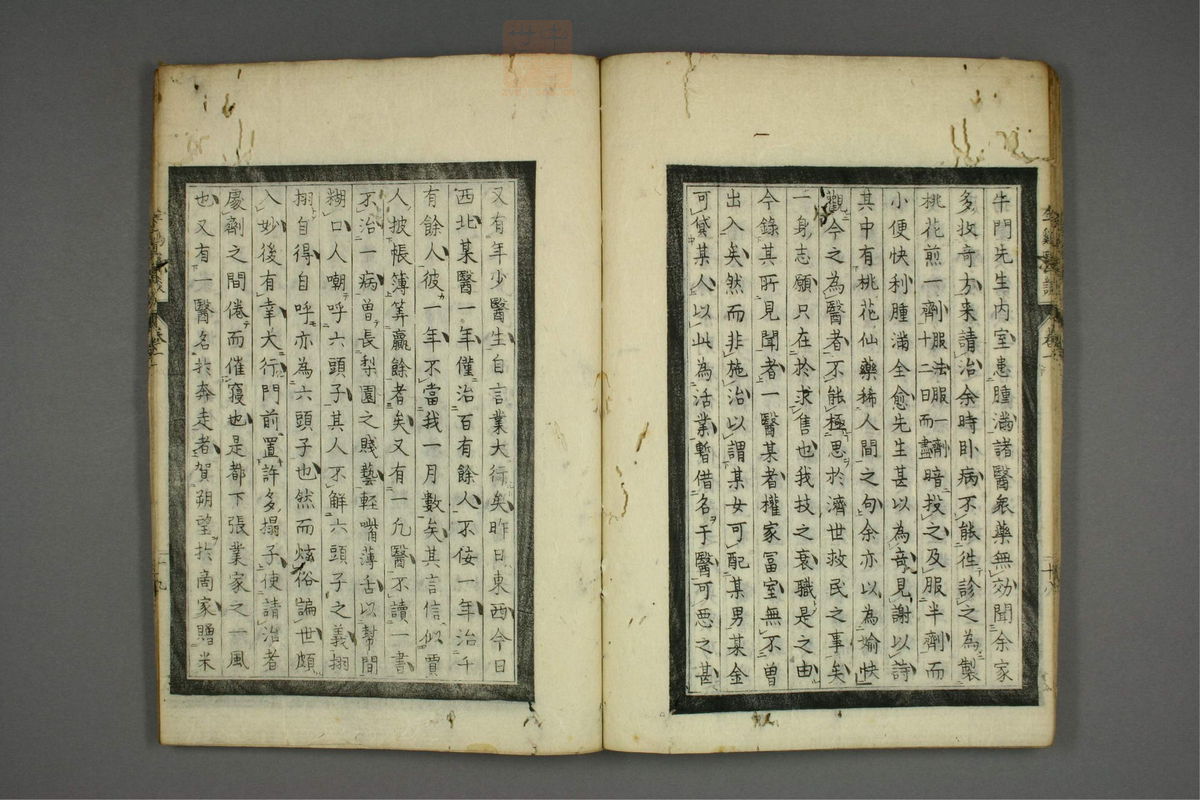 牛門先生内室患腫滿諸醫衆藥無効聞余家
多攷奇方来請治余時卧病不能徃診之為製
桃花煎一劑服法服一劑暗投之及服半劑而
小便快利腫滿全愈先生甚以為奇見謝以詩
其中有桃花仙藥稀人間之句余亦以為愉快
觀今之為醫者不能極思於濟世救民之事矣
一身志願只在於求售也我技之衰職是之由
今錄其所見聞者一醫某者權家冨室無不曽
出入矣然而非施治以謂某女可配某男某金
可貸某人以此為活業暫借名于醫可惡之甚
又有年少醫生自言業大行矣昨日東西今日
西北某醫一年僅治百有餘人不佞一年治千
有餘人彼一年不當我一月數矣其言信似賈
人披帳簿筭贏餘者矣又有一凢醫不讀一書
不治一病曽長梨園之賤藝輕嘴薄舌以幇間
糊口人嘲呼六頭子其人不解六頭子之義栩
栩自得自呼亦為六頭子也然而炫俗論世頗
入妙後有幸大行門前置許多搨子使請治者
處劑之間倦而催寢也是都下張業家之一風
也又有一醫名於奔走者賀朔望於商家贈米